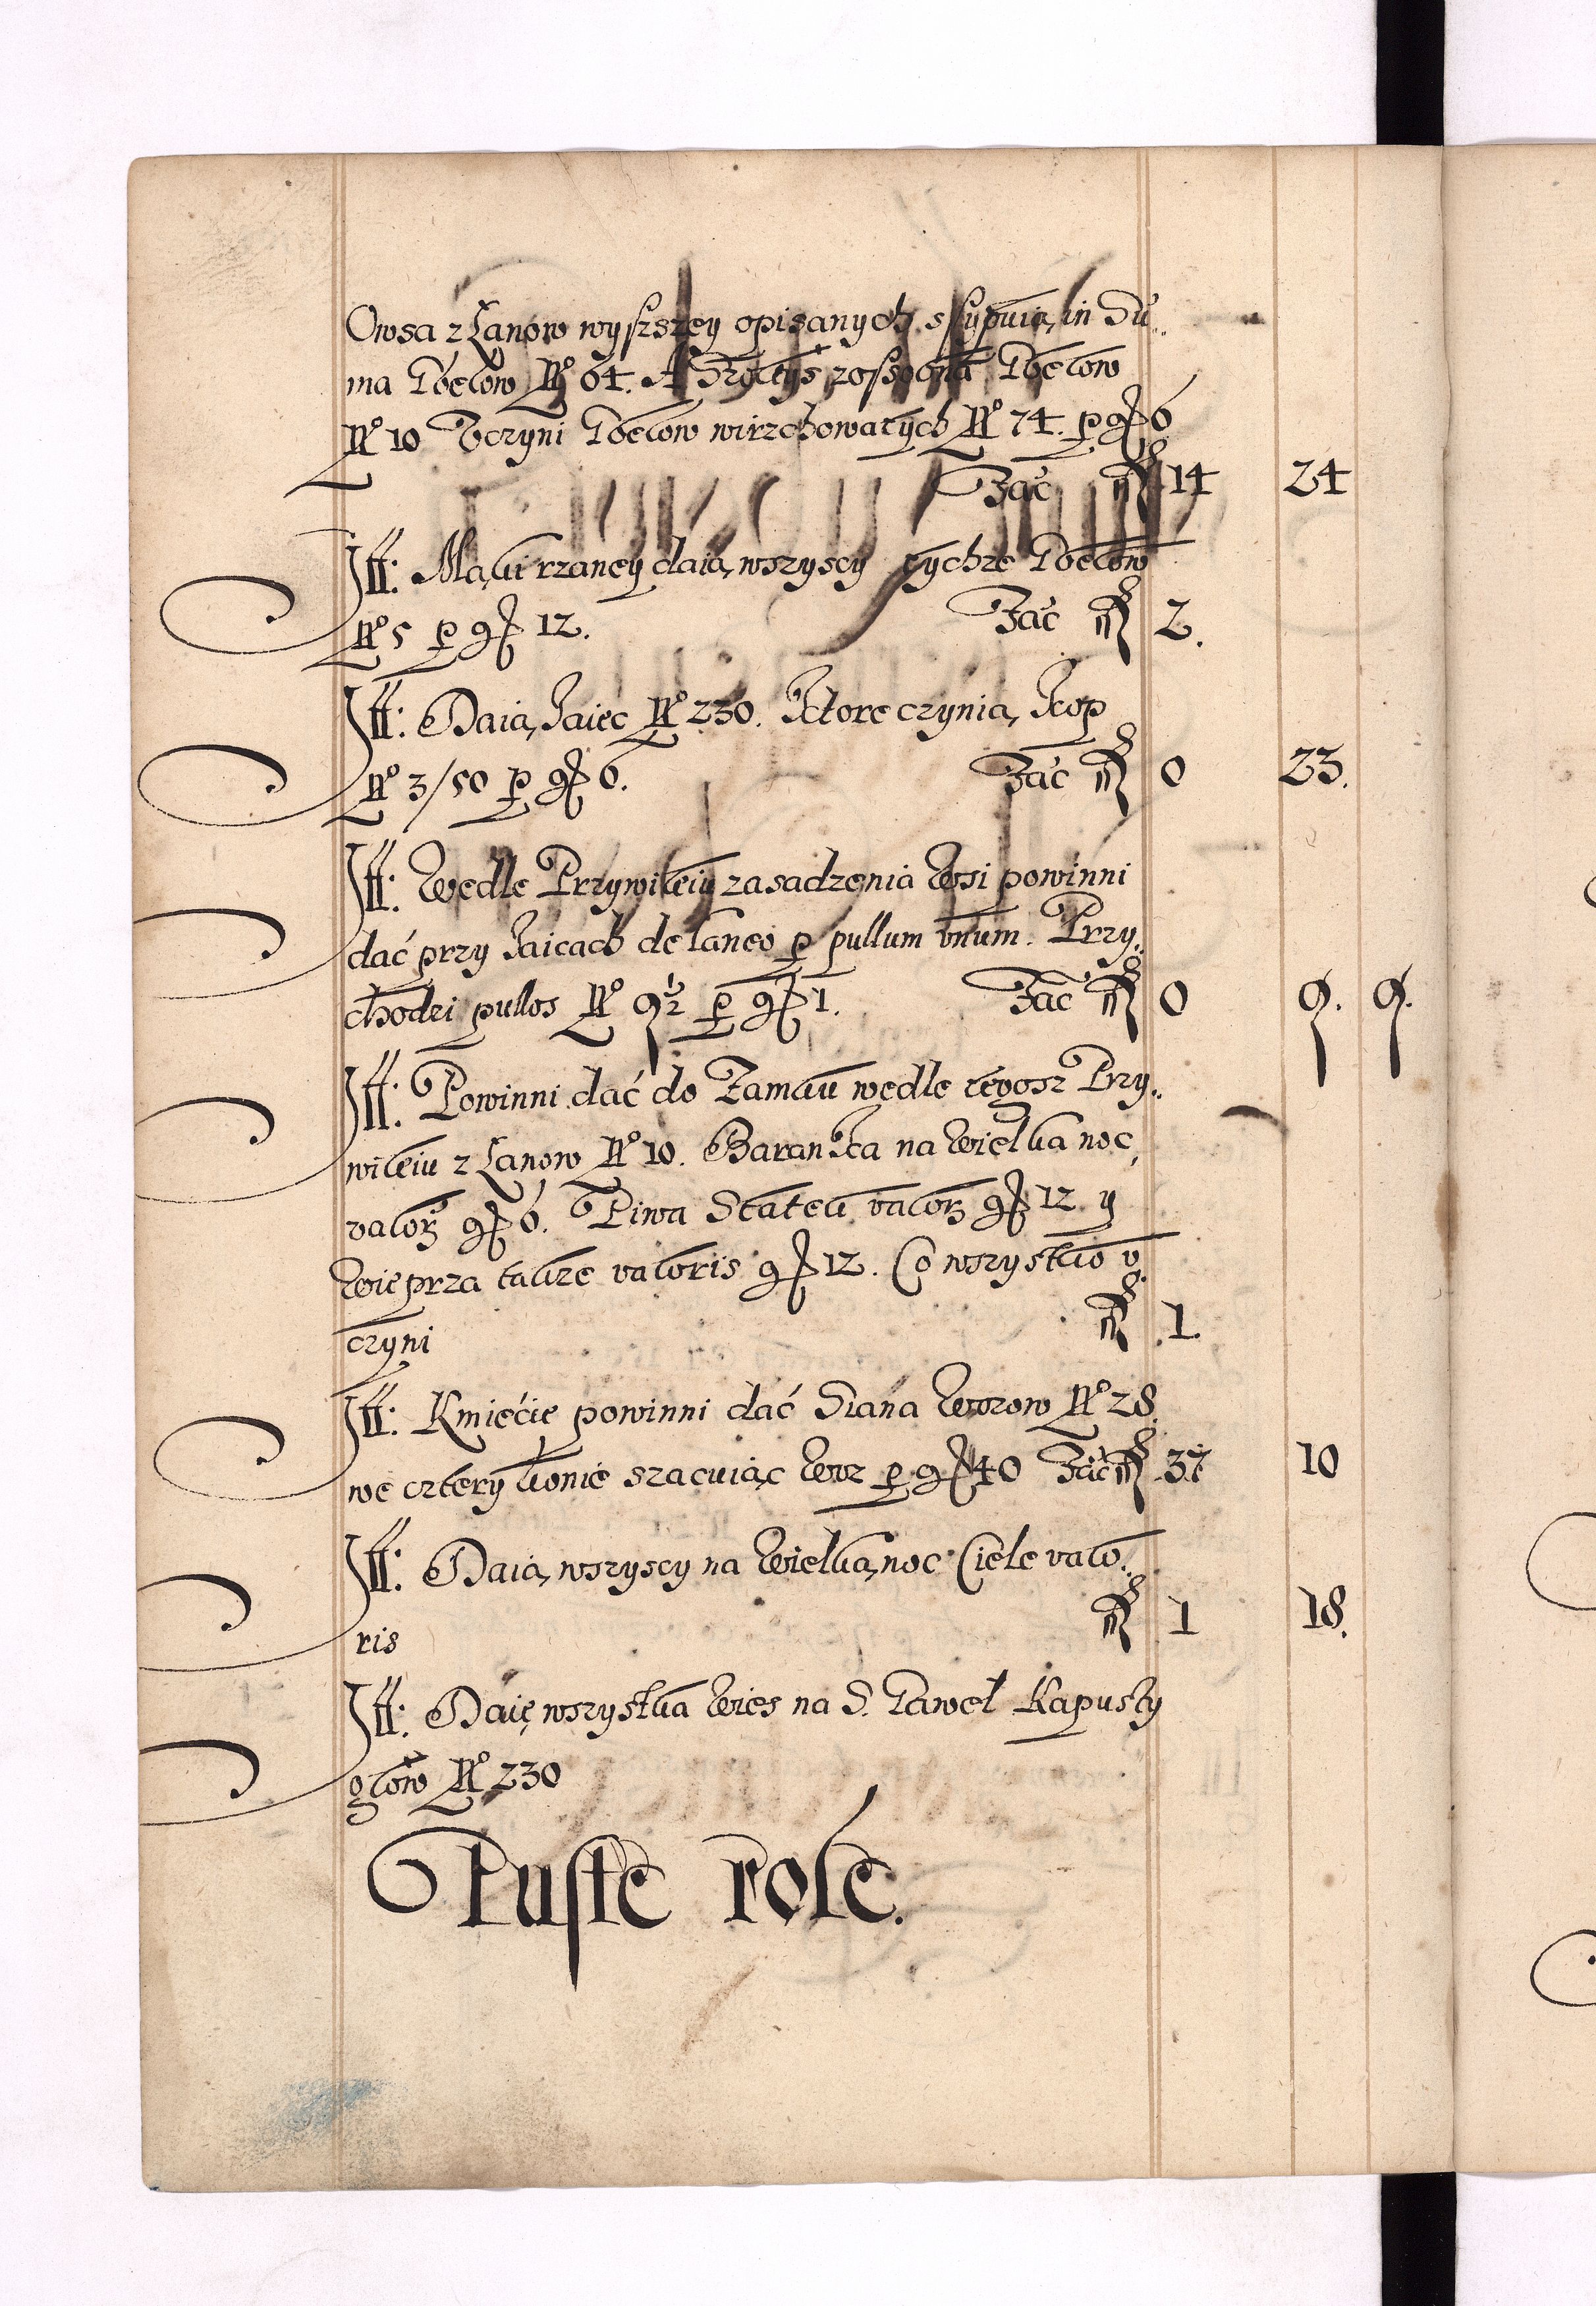 Owsa z Łanow wyszszey opisanych ssypuią in Su..
ma Cbelow No 64. A Szołtys zossobna Cbelow
No 10 Vczyni Cbelow wirzchowatych No 74. p gr 6
Fac fl 14 24
It: Mąki rzaney daią wszyscy tychze Cbelow
No 5 p gr 12. Fac fl 2.
It: Daią Jaiec No 230. Ktore czynią Kop
No 3/50 p gr 6. Fac fl 0 23.
It: Wedle Przywileiu zasadzenia Wsi powinni
dać przy Jaicach de laneo p pullum vnum. Przy..
chodzi pullos No 9½ p gr 1. Fac fl 0 9. 9.
It: Powinni dać do Zamku wedle tegosz Przy..
wileiu z Łanow No 10. Baranka na Wielką noc,
valoris gr 6. Piwa Statek valoris gr 12 y
Wieprza takze valoris gr 12. Co wszystko v
czyni fl 1.
It: Kmiećie powinni dać Siana Wozow No 28.
we cztery konie szacuiąc Woz p gr 40 Fac fl 37 10
It: Daią wszyscy na Wielką noc Ciele valo..
ris fl 1 18.
It: Daię wszystka Wies na S. Paweł Kapusty
głow No 230
Puste role.